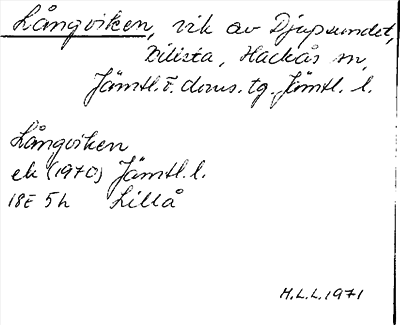 Långviken, vik av Djupsundet,
Bilista, Hackås sn,
Jämtl. v. doms. tg. Jämtl. l.
Långviken
ek (1970) Jämtl. l.
18E 5h Lillå
H.L.L. 1971